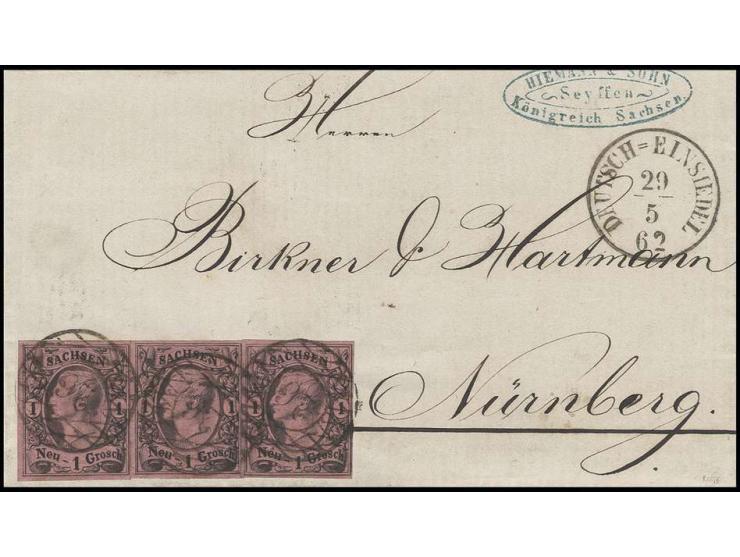 HIEMANN & SOHN
Seyffen
Königreich Sachsen
Herren
DEUTSCH=EINSIEDEL
29
5
62
Birkner & Hartmann
Nürnberg.
SACHSEN
1 1
Neu - 1 Grosch
SACHSEN
1 1
Neu - 1 Grosch
SACHSEN
1 1
Neu - 1 Grosch